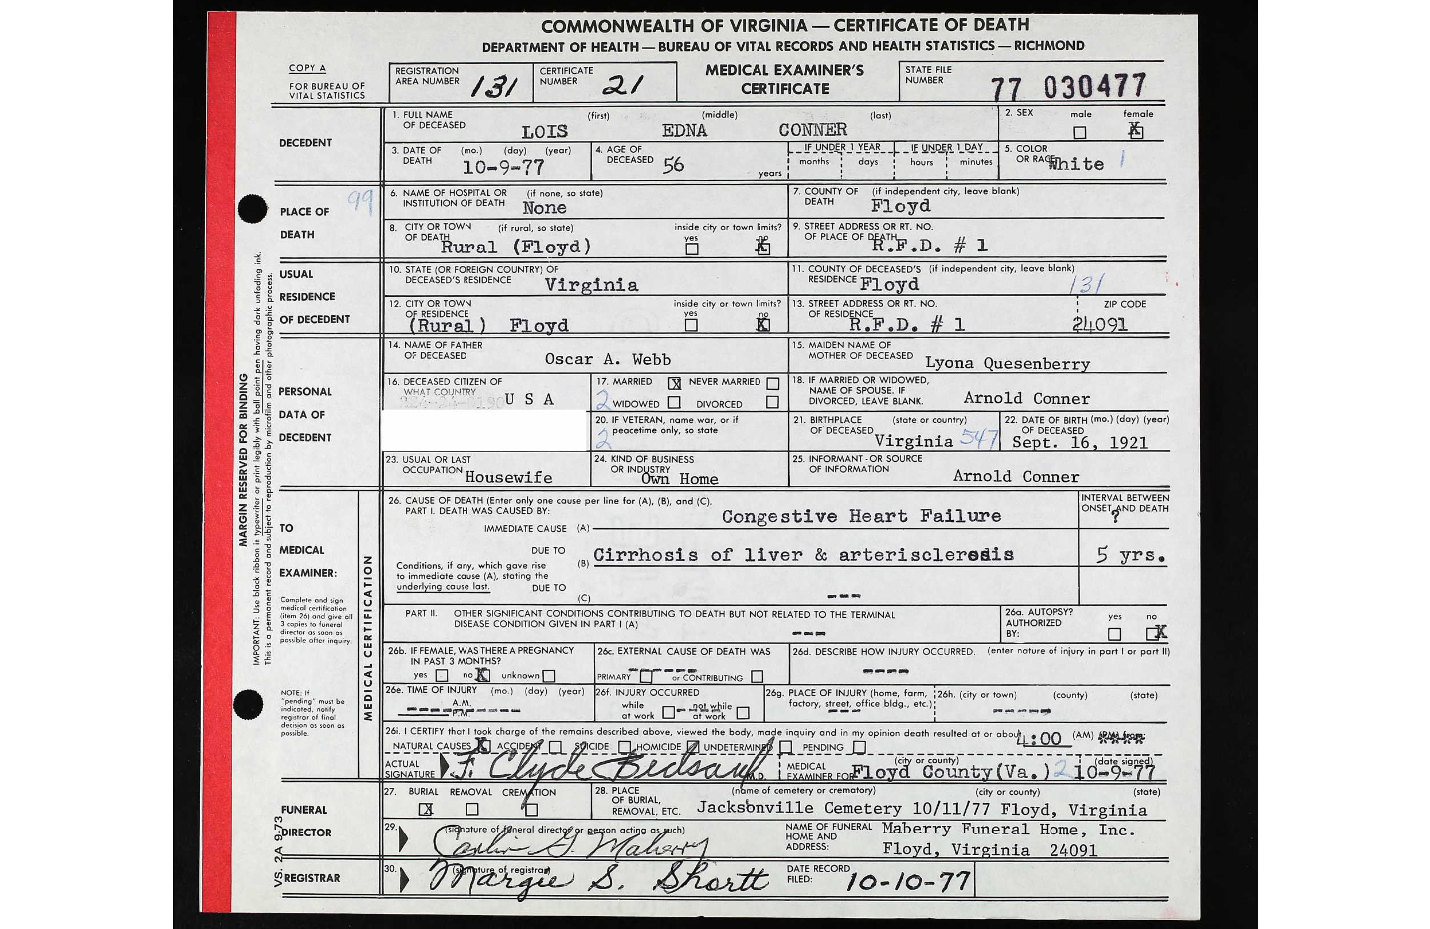 COMMONWEALTH OF VIRGINIA — CERTIFICATE OF DEATH
DEPARTMENT OF HEALTH — BUREAU OF VITAL RECORDS AND HEALTH STATISTICS — RICHMOND
COPY A
FOR BUREAU OF
VITAL STATISTICS
REGISTRATION
AREA NUMBER 131
CERTIFICATE
NUMBER 21
MEDICAL EXAMINER'S
CERTIFICATE
STATE FILE
NUMBER 77 030477
DECEDENT
1. FULL NAME (first) (middle) (last)
OF DECEASED LOIS EDNA CONNER
2. SEX male female
X
3. DATE OF (mo.) (day) (year)
DEATH 10-9-77
4. AGE OF
DECEASED 56
years
IF UNDER 1 YEAR IF UNDER 1 DAY
months days hours minutes
5. COLOR
OR RACE White 1
PLACE OF
DEATH
99
6. NAME OF HOSPITAL OR (if none, so state)
INSTITUTION OF DEATH None
7. COUNTY OF (if independent city, leave blank)
DEATH Floyd
8. CITY OR TOWN (if rural, so state) inside city or town limits?
OF DEATH Rural (Floyd) yes no X
9. STREET ADDRESS OR RT. NO.
OF PLACE OF DEATH R.F.D. # 1
USUAL
RESIDENCE
OF DECEDENT
10. STATE (OR FOREIGN COUNTRY) OF
DECEASED'S RESIDENCE Virginia
11. COUNTY OF DECEASED'S (if independent city, leave blank)
RESIDENCE Floyd 131
12. CITY OR TOWN inside city or town limits?
OF RESIDENCE yes no
(Rural) Floyd X
13. STREET ADDRESS OR RT. NO. ZIP CODE
OF RESIDENCE
R.F.D. # 1 24091
PERSONAL
DATA OF
DECEDENT
14. NAME OF FATHER
OF DECEASED Oscar A. Webb
15. MAIDEN NAME OF
MOTHER OF DECEASED Lyona Quesenberry
16. DECEASED CITIZEN OF
WHAT COUNTRY U S A
17. MARRIED X NEVER MARRIED
2 WIDOWED DIVORCED
18. IF MARRIED OR WIDOWED,
NAME OF SPOUSE. IF
DIVORCED, LEAVE BLANK. Arnold Conner
20. IF VETERAN, name war, or if
peacetime only, so state
2
21. BIRTHPLACE (state or country)
OF DECEASED Virginia 547
22. DATE OF BIRTH (mo.) (day) (year)
OF DECEASED
Sept. 16, 1921
23. USUAL OR LAST
OCCUPATION Housewife
24. KIND OF BUSINESS
OR INDUSTRY
Own Home
25. INFORMANT - OR SOURCE
OF INFORMATION Arnold Conner
MARGIN RESERVED FOR BINDING
IMPORTANT: Use black ribbon in typewriter or print legibly with ball point pen having dark unfading ink.
This is a permanent record and subject to reproduction by microfilm and other photographic process.
TO
MEDICAL
EXAMINER:
Complete and sign
medical certification
(item 26) and give all
3 copies to funeral
director as soon as
possible after inquiry.
NOTE: If
"pending" must be
indicated, notify
registrar of final
decision as soon as
possible.
MEDICAL CERTIFICATION
26. CAUSE OF DEATH (Enter only one cause per line for (A), (B), and (C).
PART I. DEATH WAS CAUSED BY:
IMMEDIATE CAUSE (A) Congestive Heart Failure
INTERVAL BETWEEN
ONSET AND DEATH
?
DUE TO
(B) Cirrhosis of liver & arteriosclerosis 5 yrs.
Conditions, if any, which gave rise
to immediate cause (A), stating the
underlying cause last. DUE TO
(C) ---
PART II. OTHER SIGNIFICANT CONDITIONS CONTRIBUTING TO DEATH BUT NOT RELATED TO THE TERMINAL
DISEASE CONDITION GIVEN IN PART I (A)
---
26a. AUTOPSY?
AUTHORIZED
BY: yes no X
26b. IF FEMALE, WAS THERE A PREGNANCY
IN PAST 3 MONTHS?
yes no X unknown
26c. EXTERNAL CAUSE OF DEATH WAS
PRIMARY or CONTRIBUTING
26d. DESCRIBE HOW INJURY OCCURRED. (enter nature of injury in part I or part II)
----
26e. TIME OF INJURY (mo.) (day) (year)
A.M.
P.M.
26f. INJURY OCCURRED
while not while
at work at work
26g. PLACE OF INJURY (home, farm,
factory, street, office bldg., etc.)
---
26h. (city or town) (county) (state)
----
26i. I CERTIFY that I took charge of the remains described above, viewed the body, made inquiry and in my opinion death resulted at or about 4:00 (AM)
NATURAL CAUSES X ACCIDENT SUICIDE HOMICIDE UNDETERMINED PENDING
ACTUAL
SIGNATURE F. Clyde Bedsaul M.D.
MEDICAL (city or county) (date signed)
EXAMINER FOR Floyd County (Va.) 2 10-9-77
FUNERAL
DIRECTOR
27. BURIAL REMOVAL CREMATION
X
28. PLACE (name of cemetery or crematory) (city or county) (state)
OF BURIAL,
REMOVAL, ETC. Jacksonville Cemetery 10/11/77 Floyd, Virginia
29. (signature of funeral director or person acting as such)
Carlin G. Maberry
NAME OF FUNERAL
HOME AND
ADDRESS:
Maberry Funeral Home, Inc.
Floyd, Virginia 24091
REGISTRAR
30. (signature of registrar)
Margie S. Shortt
DATE RECORD
FILED: 10-10-77
VS. 2A 9-73